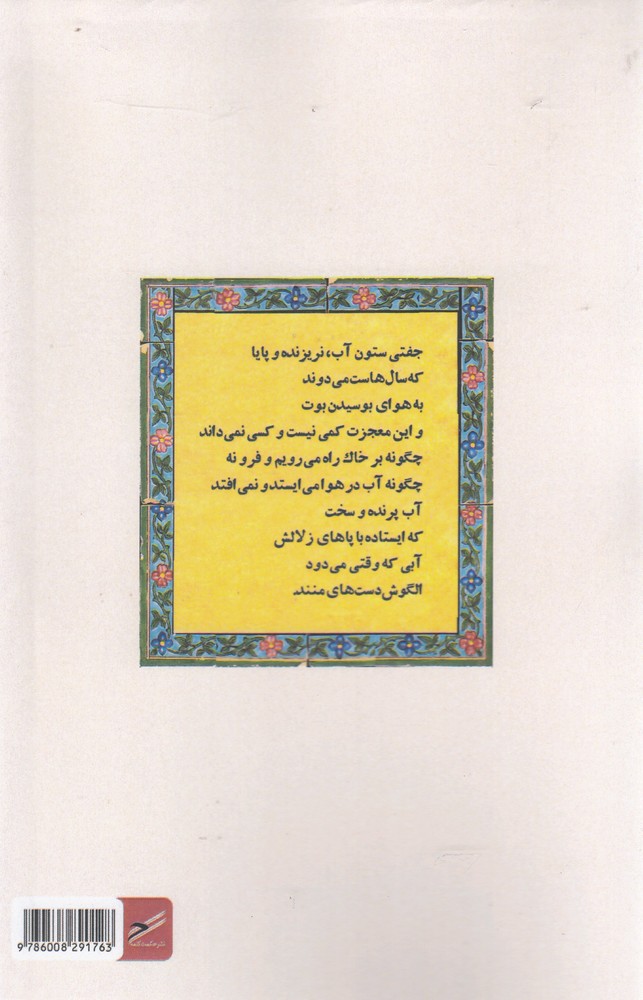 جفتی ستون آب، نریزنده و پایا
که سال‌هاست می‌دوند
به هوای بوسیدن بوت
و این معجزت کمی نیست و کسی نمی‌داند
چگونه بر خاك راه می‌رویم و فرو نه
چگونه آب در هوا می ایستد و نمی افتد
آب پرنده و سخت
که ایستاده با پاهای زلالش
آبی که وقتی می‌دود
الگوش دست‌های منند
9 786008 291763